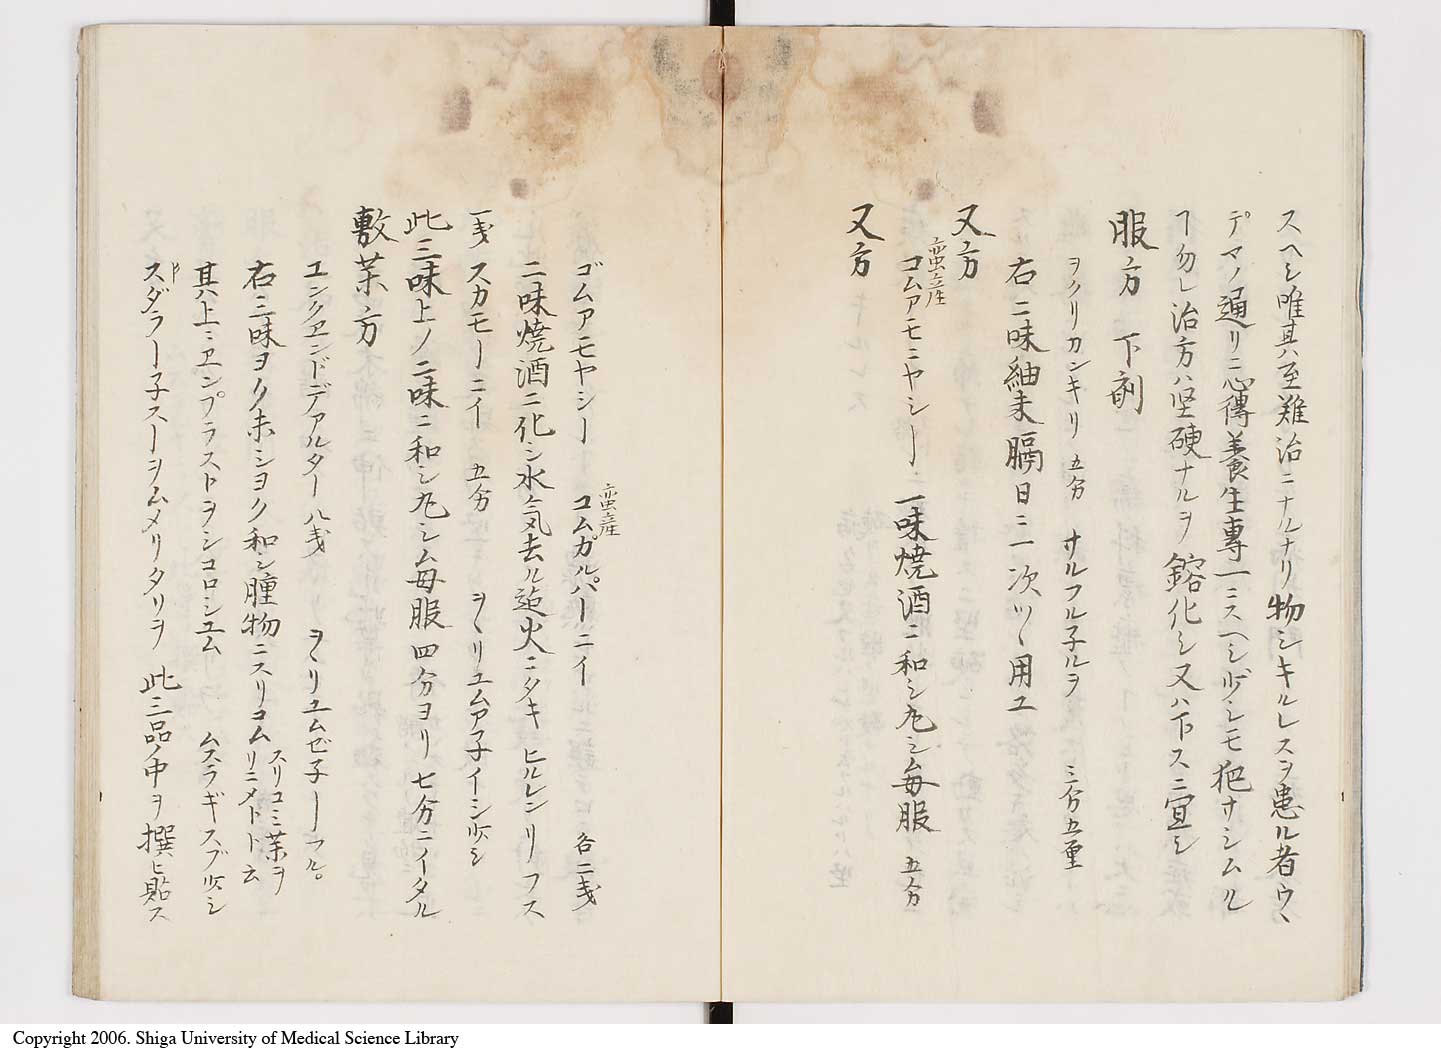 スヘシ唯其至難治ニナルナリ物シキルレスヲ患ル者ウヽ
デマノ通リニ心得養生專一ミスヘシ少シモ犯サシムル
ヿ勿レ治方ハ坚硬ナルヲ鎔化シ又ハ下スニ宜シ
服方 下剤
ヲクリカンキリ 五分 サルフル子ルヲ 三分五厘
右二味細末膈日ニ一次ツヽ用ユ
又方
蛮産
コムアモニヤシー 一味焼酒ニ和シ丸シ毎服 五分
又方
ゴムアモヤシー 蛮産 コムガルバーニイ 各二戔
二味焼酒ニ化シ水気去ル迠火ニタキ ヒルレンリフス
一戔 スカモーニイ 五分 ヲヽリユムア子イシ少シ
此三味上ノ二味ニ和シ丸シム毎服四分ヨリ七分ニイタル
敷茉方
ユンクヱンドデアルター 八戔 ヲヽリユムゼ子ーフル。
右三味ヲク末シヨク和シ腫物ニスリコム スリコミ茉ヲ リニメトト云
其上ニヱンプラストヲシコロシユム ムスラギスブ少シ
スダラー子スーヲムメリタリヲ 此三品ノ中ヲ撰ヒ貼ス
Copyright 2006. Shiga University of Medical Science Library